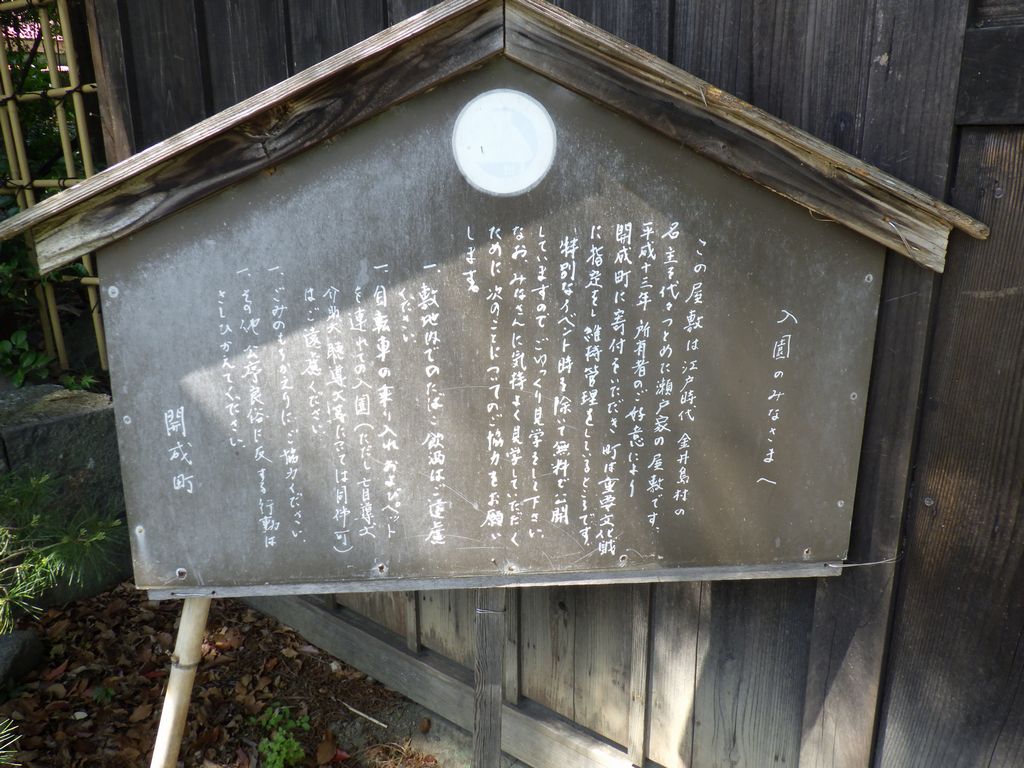 入園のみなさまへ
この屋敷は江戸時代 金井島村の
名主を代々つとめた瀬戸家の屋敷です。
平成十三年 所有者のご好意により
開成町に寄付をいただき 町は重要文化財
に指定をし 維持管理をしているところです。
特別なイベント時を除いて無料で公開
していますので ごゆっくり見学をして下さい。
なお みなさんに気持よく見学していただく
ために 次のことについてのご協力をお願い
します。
一、敷地内でのたばこ 飲酒は、ご遠慮
ください。
一、自転車の乗り入れ およびペット
を連れての入園(ただし 盲導犬
介助犬 聴導犬等については同伴可)
はご遠慮ください。
一、ごみのもちかえりに、ご協力ください。
一、その他 公序良俗に反する行動は
さしひかえてください。
開成町